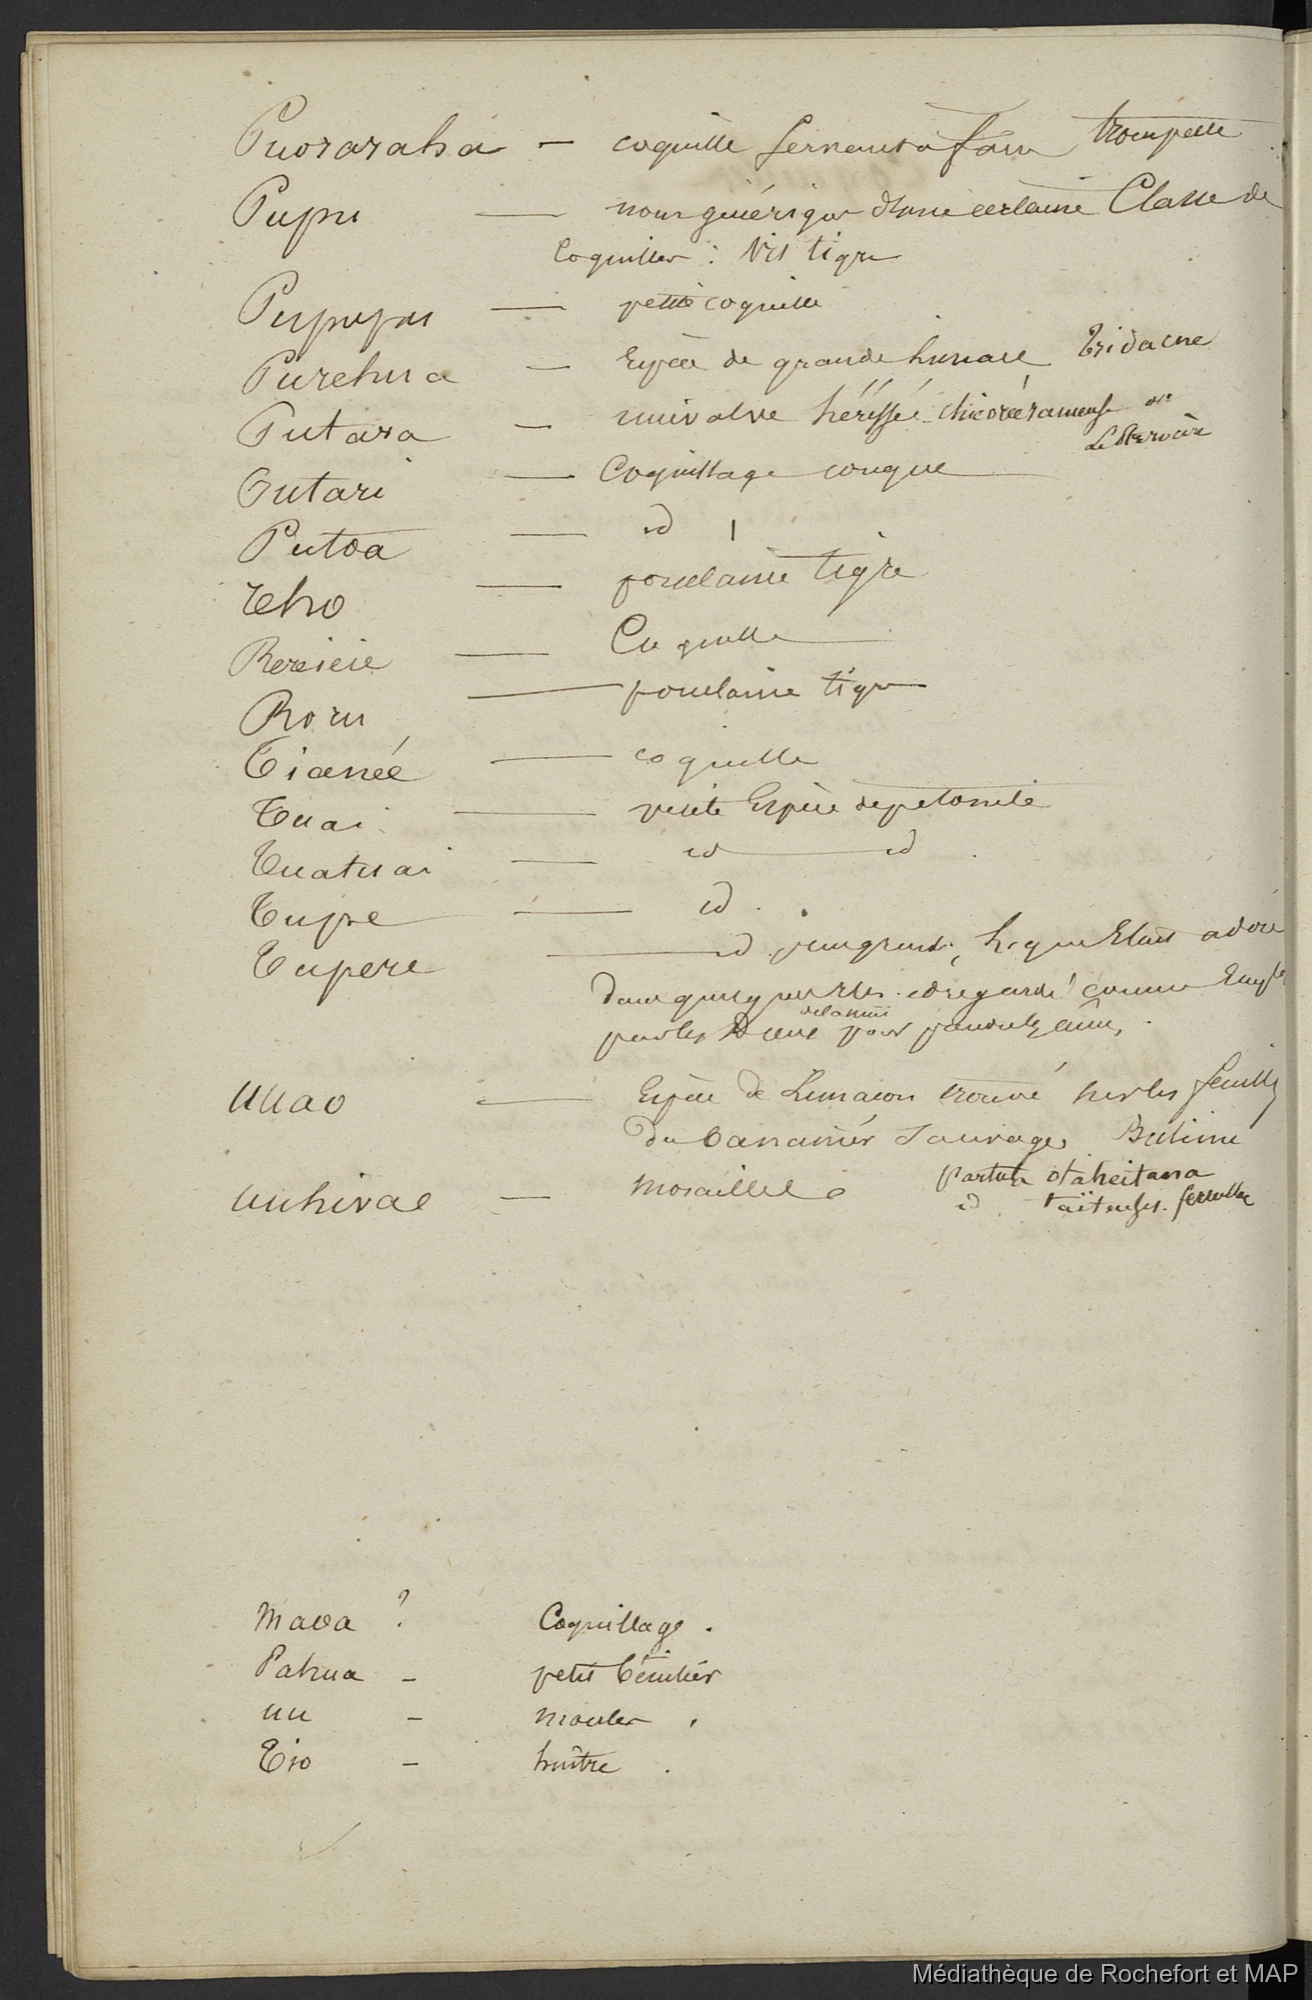 Puoraraha — coquille servant a faire trompette
Pupu — nom générique d'une certaine Classe de
Coquilles : Vis tigre
Pupupu — petite coquille
Purehua — Espèce de grande huitre Tridacne
Putara — univalve hérissée chicorée rameuse ou
Putari — Coquillage conque
Putoa — id
Reho — porcelaine tigre
Rereieie — Coquille
Roru — porcelaine tigre
Tianéé — coquille
Tuai — petite Espèce de petoncle
Tuatuai — id — id
Tupe — id .
Tupere — id plus grande, lequel Etait adoré
dans quelques Iles et regardé comme
par les Dieux pour
de la nuit
Uuao — Espèce de Limaçon trouvé sur les feuilles
du bananier sauvage Bulime
uuhivae — mosaillee
partula otaheitana
id
Maoa ? Coquillage .
Pahua - petit bénitier
uu - moules .
Tio - huître .
Médiathèque de Rochefort et MAP